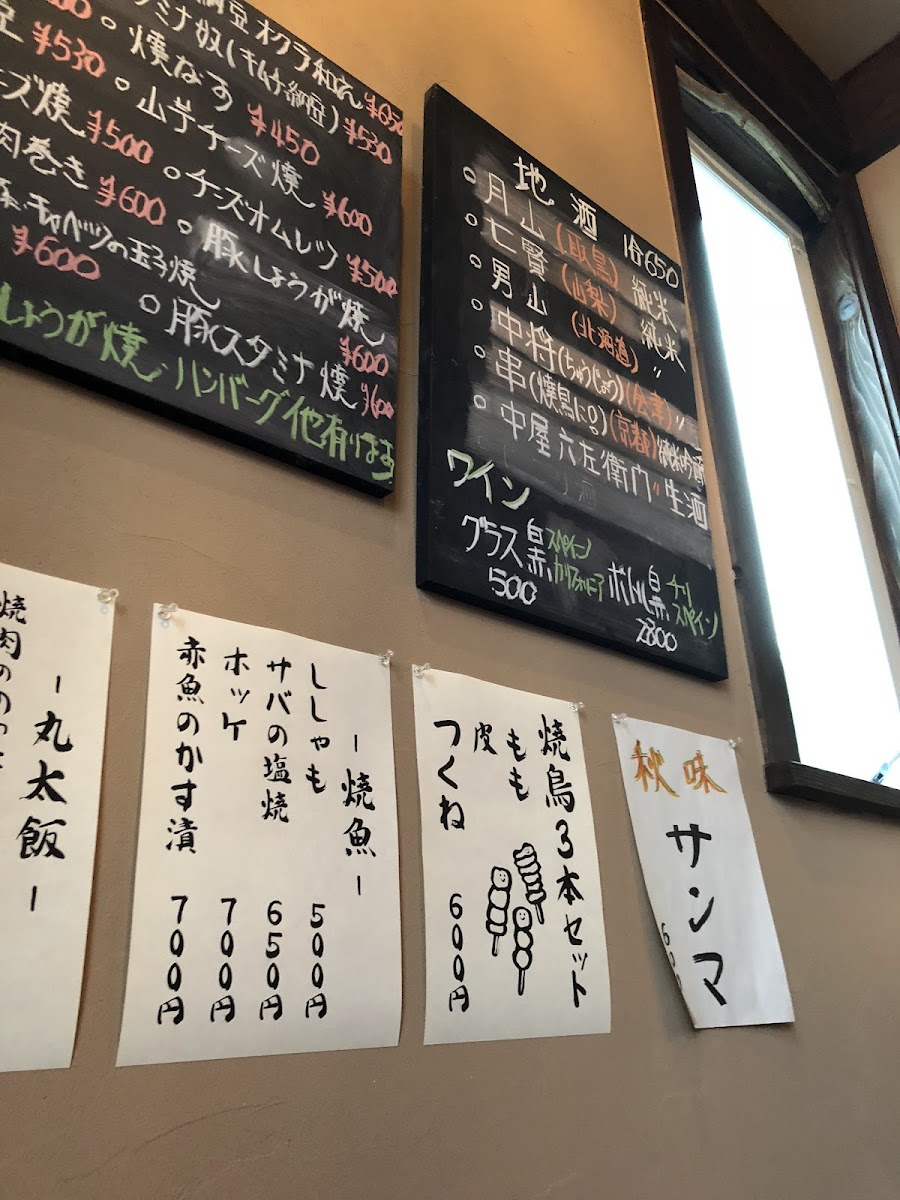 納豆オクラ和え ¥650
スタミナ奴(キムチ納豆) ¥530
¥530
焼なす ¥450
山芋チーズ焼 ¥600
ーズ焼 ¥500
チーズオムレツ ¥500
肉巻き ¥600
豚しょうが焼 ¥600
キャベツの玉子焼 ¥600
豚スタミナ焼 ¥600
しょうが焼 ハンバーグ他有ります
地酒 各650
月山(鳥取) 純米
七賢(山梨) 純米
男山(北海道) 〃
中将(ちゅうじょう)(会津) 〃
串(焼鳥に◎)(京都)純米吟醸
中屋六左衛門 〃 生酒
ワイン
グラス 白 赤 スペイン カリフォルニア
500
ボトル 白 赤 チリ スペイン
2800
-丸太飯-
-焼魚-
ししゃも 500円
サバの塩焼 650円
ホッケ 700円
赤魚のかす漬 700円
焼鳥3本セット
もも
皮
つくね 600円
秋味
サンマ